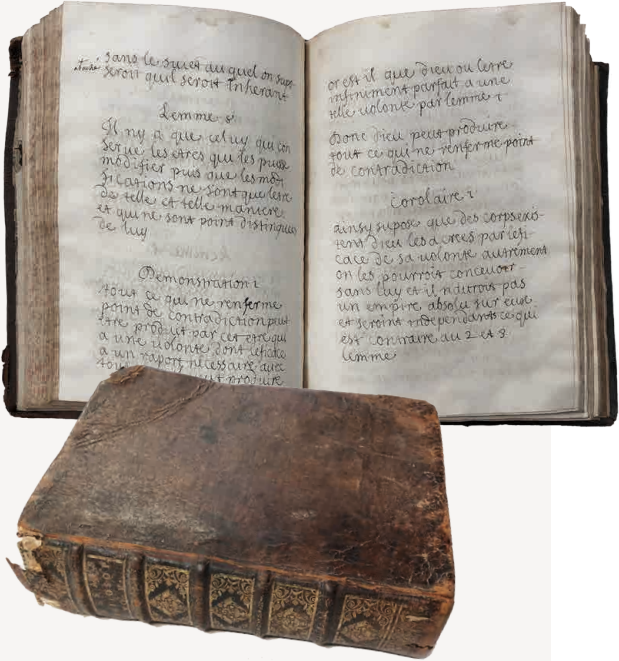 sans le sujet du quel on sup
seroit quil seroit Inherant
Lemme 8
Il ny a que celuy qui con
serve les etres qui les puisse
modifier puis que les modi
fications ne sont que letre
de telle et telle maniere
et qui ne sont point distingues
de luy
Demonstration 1
tout ce qui ne renferme
point de contradiction peut
etre produit par cet etre qui
a une volonte dont leficace
a un raport necessaire avec
tout produire
or est il que dieu ou letre
infiniment parfait a une
telle volonte par lemme 1
Donc dieu peut produire
tout ce qui ne renferme point
de contradiction
Corolaire 1
ainsy supose que des corps exis-
tent dieu les a crees par lefi-
cace de sa volonte autrement
on les pourroit concevoir
sans luy et il nauroit pas
un empire absolu sur eux
et seroint independants ce qui
est contraire au 2 et 8
lemme